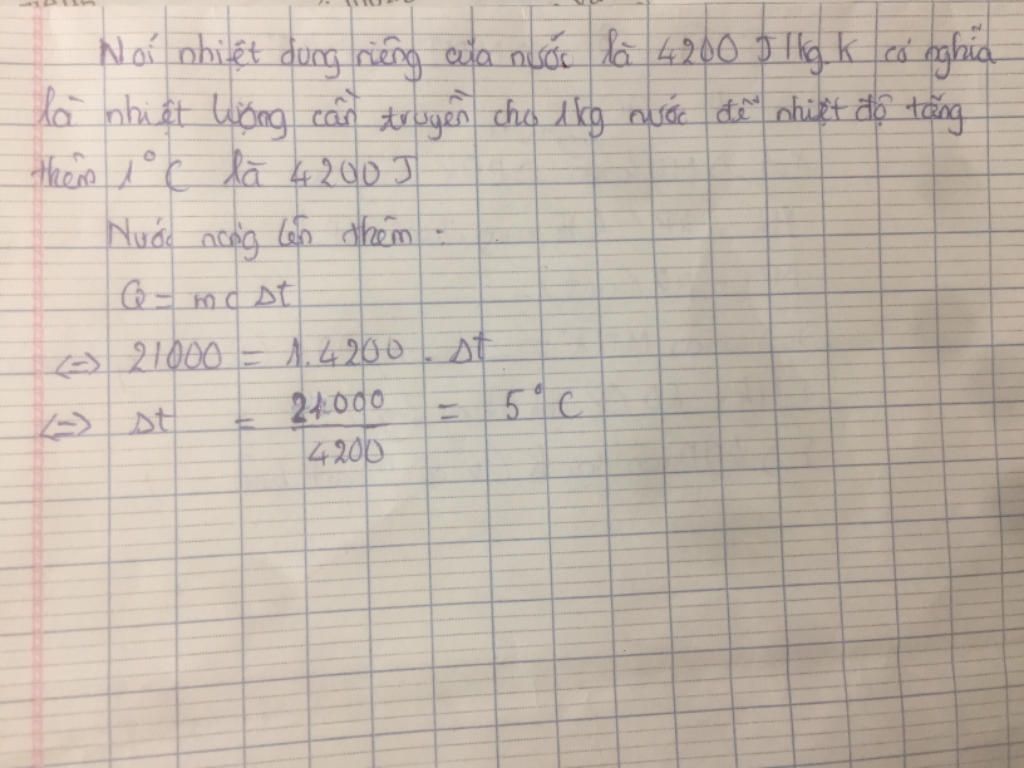 Nói nhiệt dung riêng của nước là 4200 J/kg.K có nghĩa
là nhiệt lượng cần truyền cho 1kg nước để nhiệt độ tăng
thêm 1°C là 4200J
Nước nóng lên thêm :
Q = mc Δt
<=> 21000 = 1.4200 . Δt
<=> Δt = 21000 / 4200 = 5°C